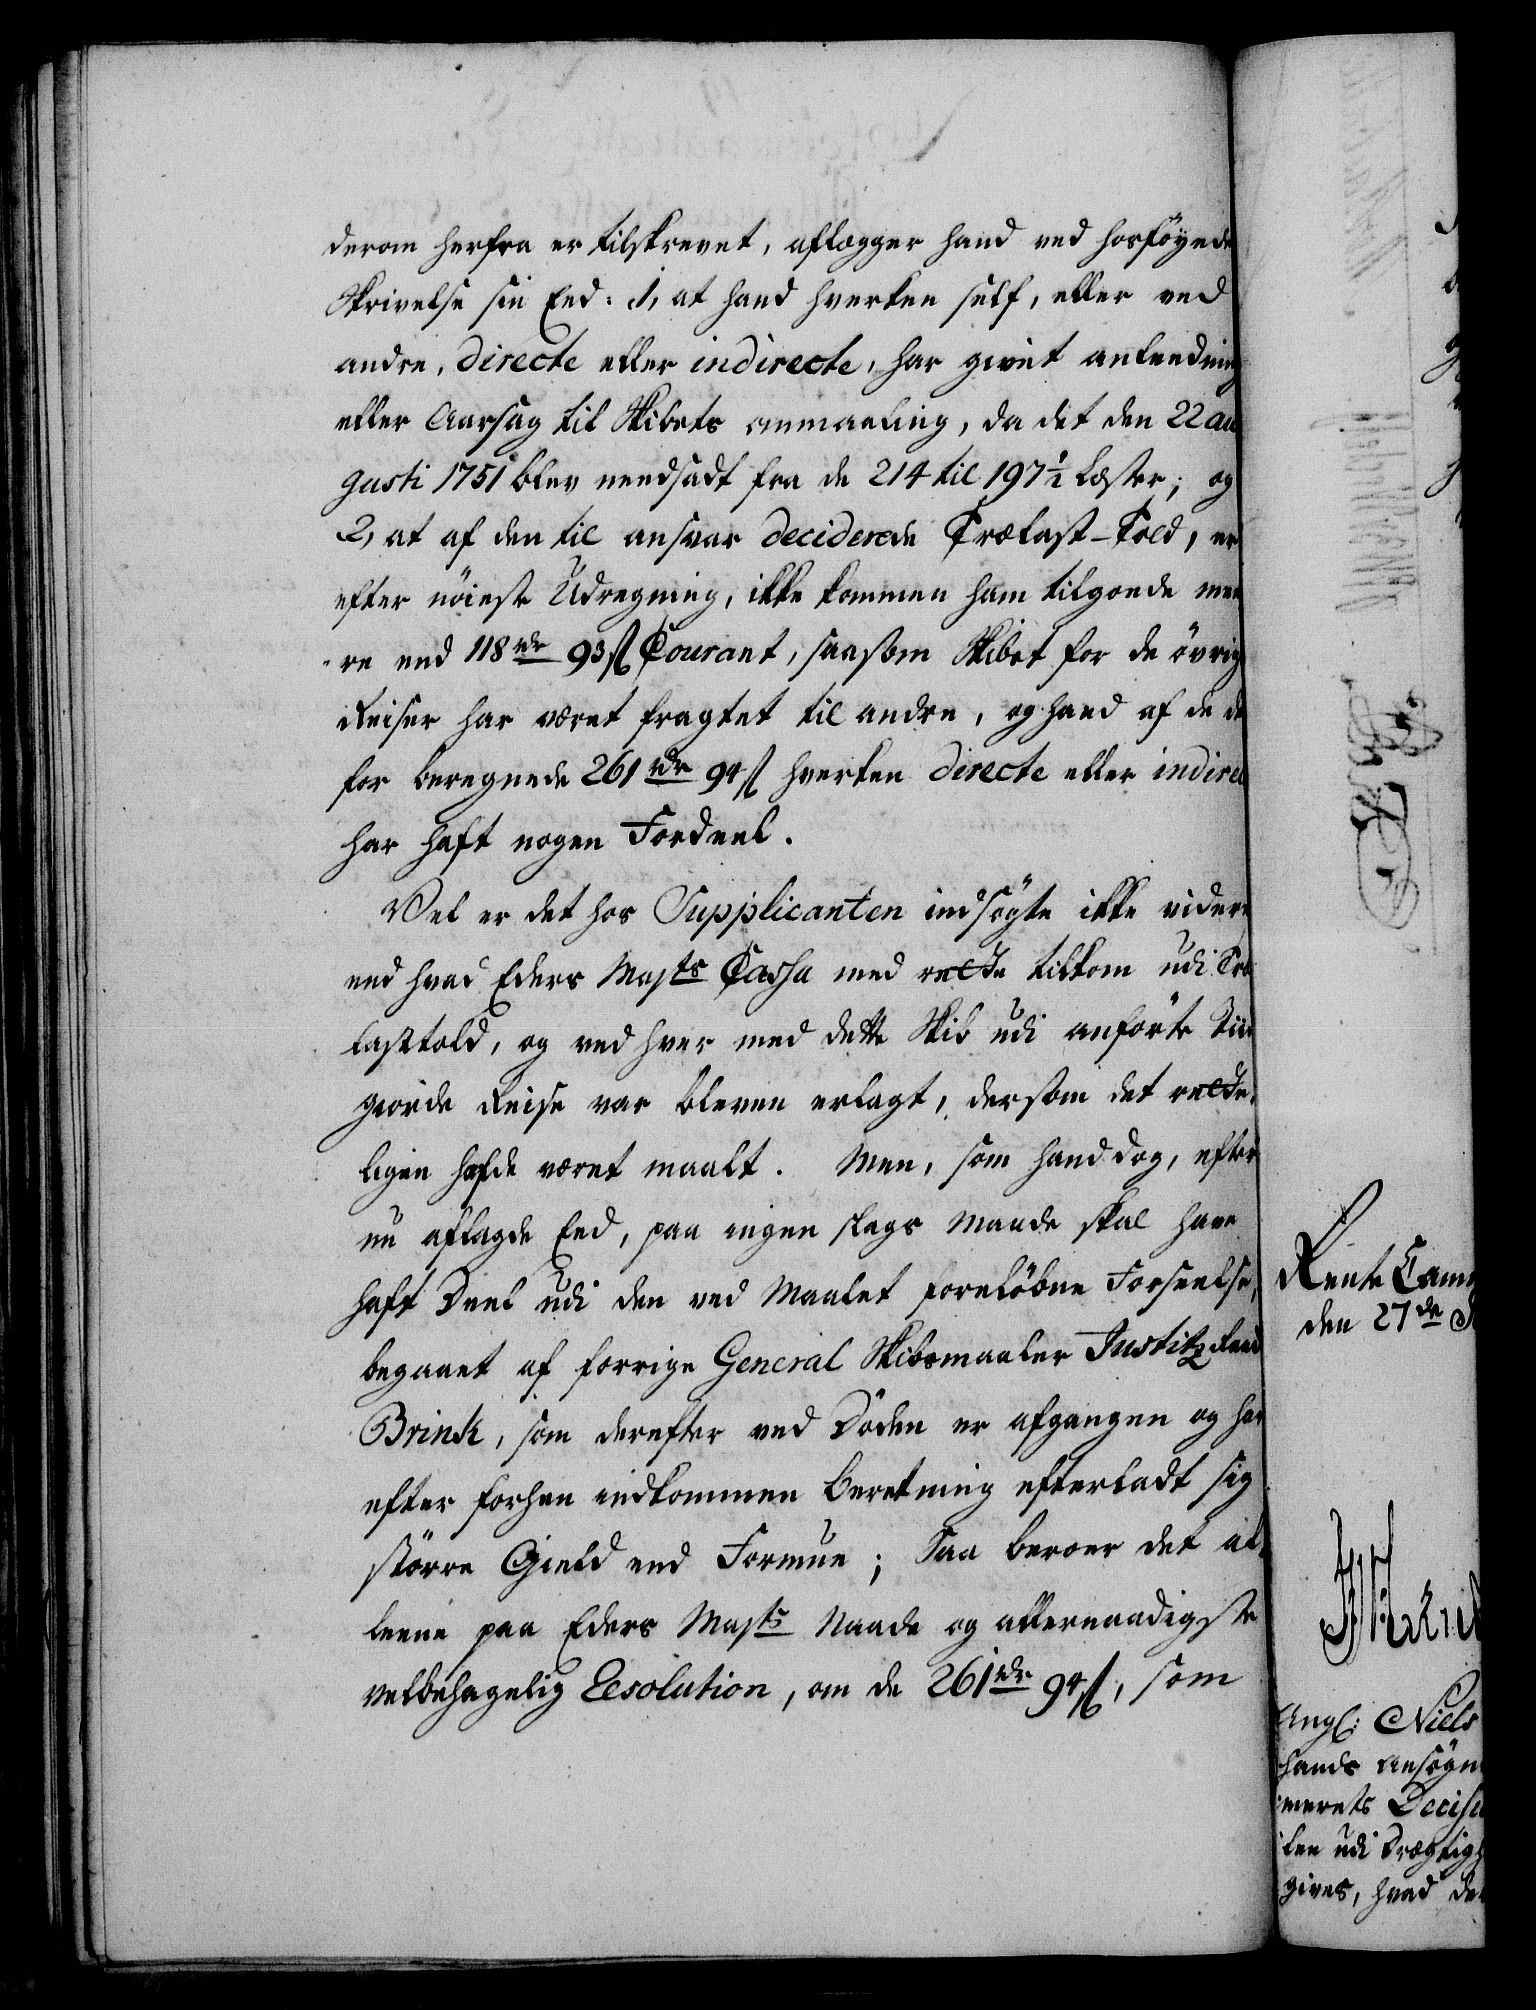 derom herfra er tilskrevet, aflægger hand ved hosföyede
Skrivelse sin Eed: 1, at hand hverken self, eller ved
andre, directe eller indirecte, har givet anledning
eller Aarsag til Skibets ommaaling, da det den 22 au
gusti 1751 blev needsadt fra de 214 til 197½ Læster; og
2, at af den til ansvar deciderede Trælast-Told, er
efter nöieste Udregning, ikke kommen ham tilgode mee
re end 118 rdr 93 ß Courant, saasom Skibet for de övrige
Reiser har været fragtet til andre, og hand af de der
for beregnede 261 rdr 94 ß hverken directe eller indirec
har haft nogen Fordeel.
Vel er det hos Supplicanten indsögte ikke videre
end hvad Eders Majts Cassa med rette tilkom udi Træ
lasttold, og ved hver med dette Skib udi anförte Tiid
giorde Reise var bleven erlagt, dersom det rette
ligen hafde været maalt. Men, som hand dog, efter
nu aflagde Eed, paa ingen slags Maade skal have
haft Deel udi den ved Maalet foreløbne Forseelse,
begaaet af forrige General Skibsmaaler Justitz Raad
Brink, som derefter ved Döden er afgangen og har
efter forhen indkommen Beretning efterladt sig
större Gield end Formue; Saa beroer det al
leene paa Eders Majts Naade og allernaadigste
velbehagelig Resolution, om de 261 rdr 94 ß, som
Rente Cam
den 27de
Angl: Niels
hands Ansögn
merets Decisi
len udi Drægtigh
gives, hvad de